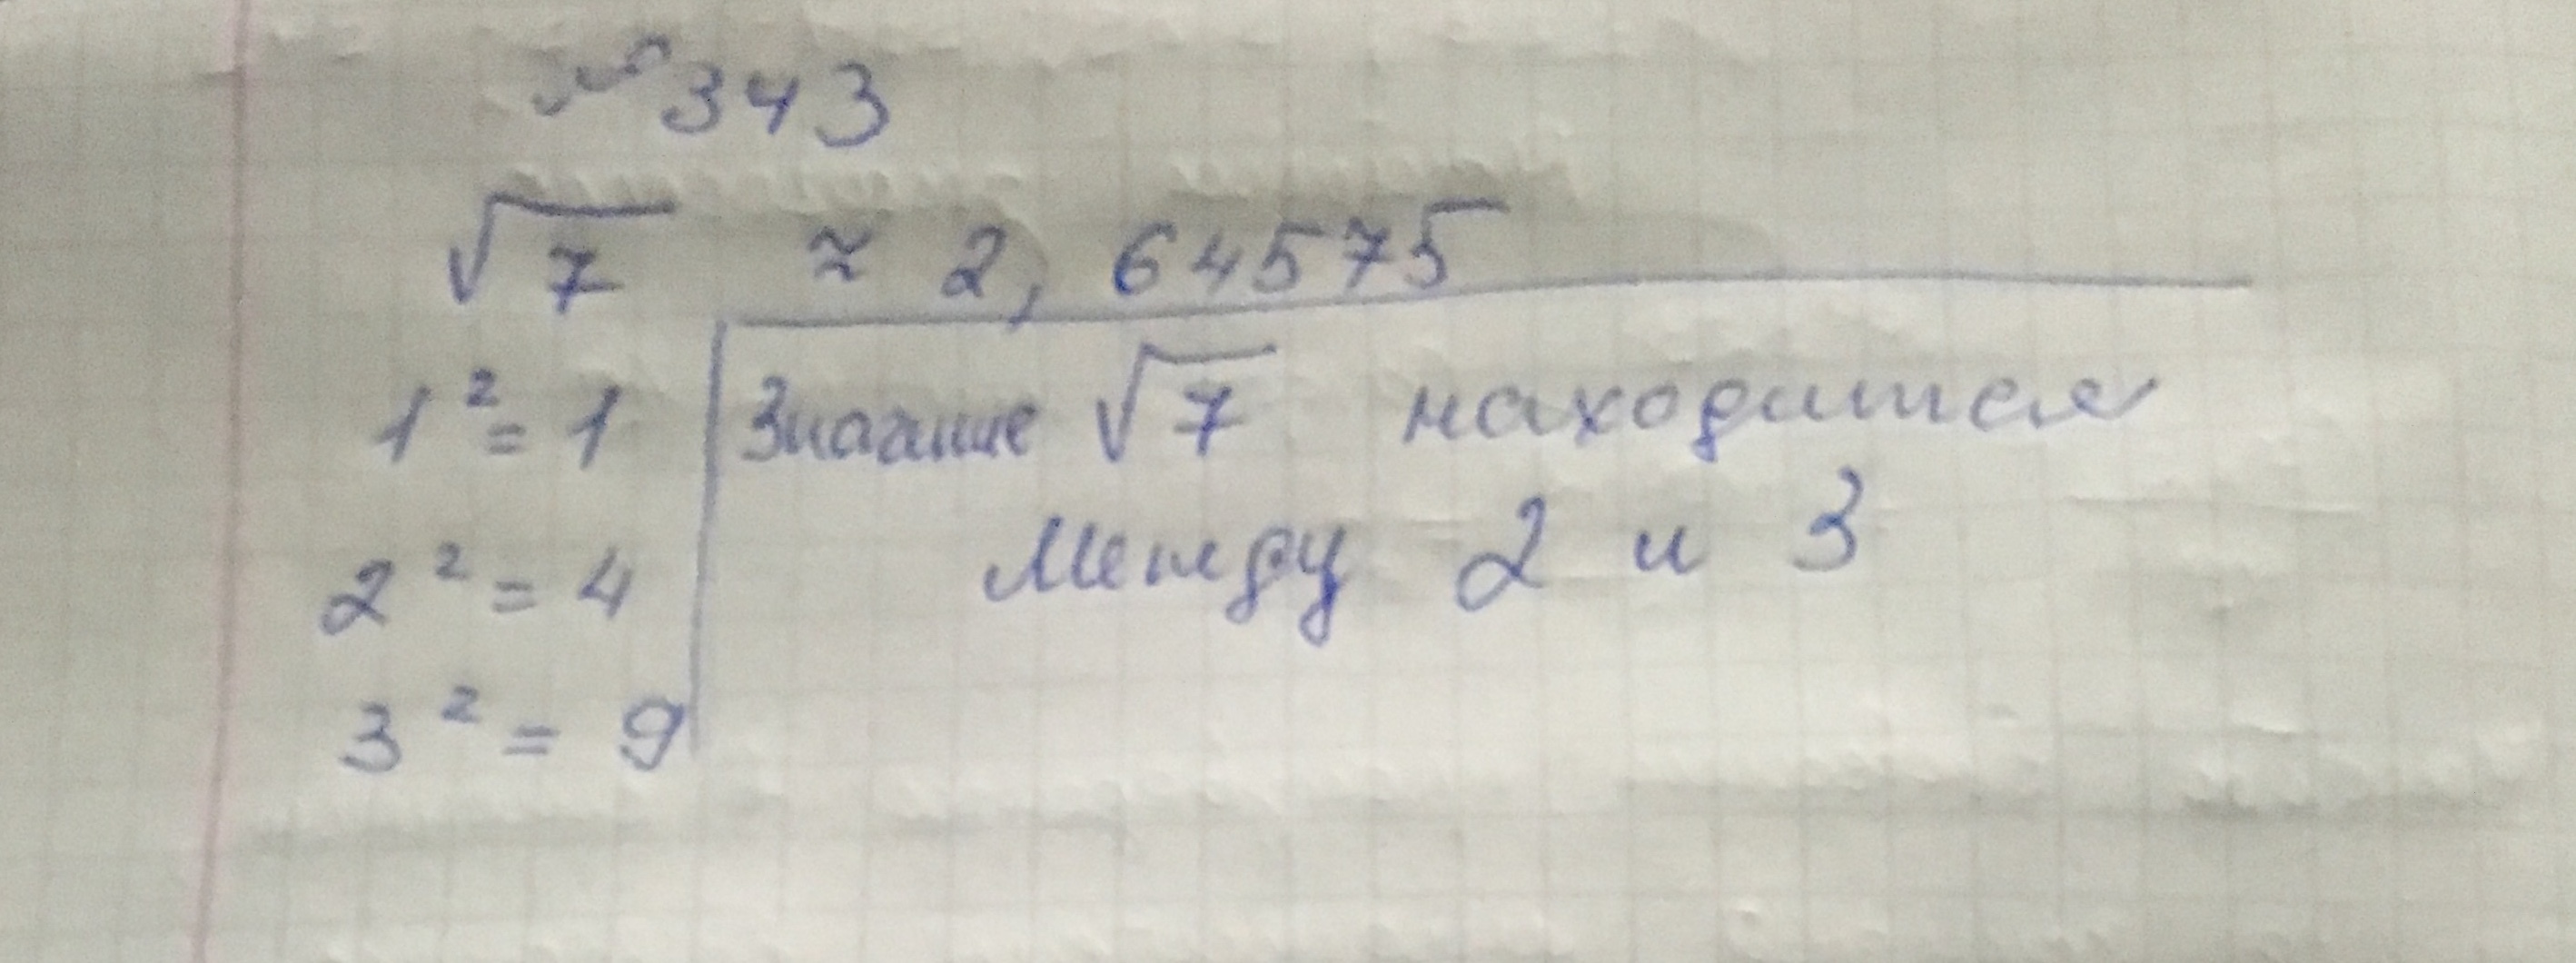 №343
√7 ≈ 2,64575
1² = 1
2² = 4
3² = 9
Значение √7 находится
Между 2 и 3